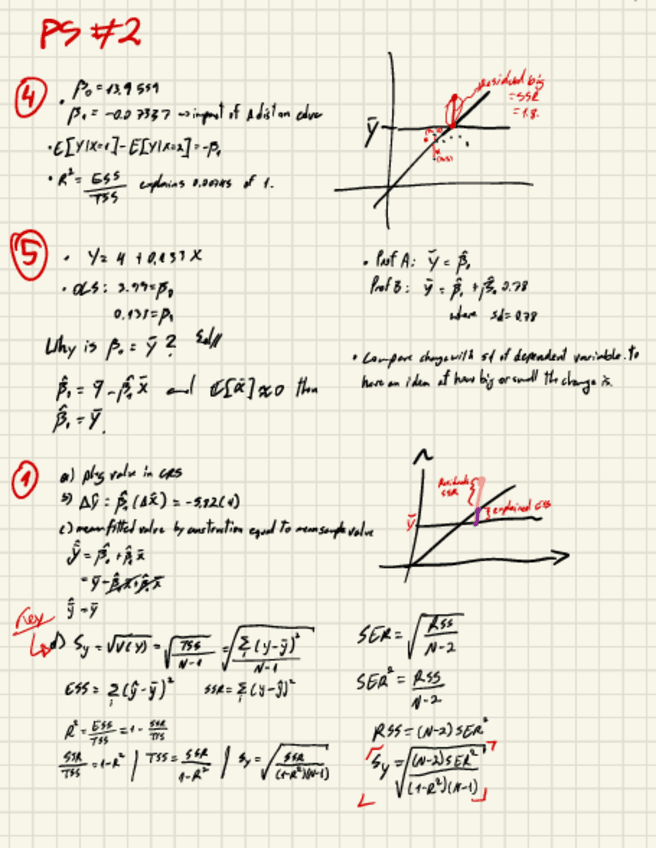 PS #2
④
• β₀ = 13.9559
β₁ = -0.07337 → impact of Δ dist on educ
• E[Y|X=1] - E[Y|X=2] = -β₁
• R² = ESS/TSS explains 0.00745 of 1.
Ȳ
Residual big
= SSR
= 1.8.
⑤
• Y = 4 + 0.137 X
• OLS: 3.99 = β₀
0.131 = β₁
Why is β₀ = ȳ?
β̂₀ = ȳ - β̂₁x̄ and E[x̄] ≈ 0 then
β̂₀ = ȳ.
• Prof A: ȳ = β̂₀
Prof B: ȳ = β̂₀ + β̂₁ 0.78
where sd = 0.78
• Compare change with sd of dependent variable. to
have an idea of how big or small the change is.
①
a) plug value in CRS
b) Δŷ = β̂₁(Δx̄) = -5.82(4)
c) mean fitted value by construction equal to mean sample value
ŷ = β̂₀ + β̂₁x̄
= ȳ - β̂₁x̄ + β̂₁x̄
ŷ = ȳ
Residual
SSR
explained ESS
ȳ
Key
d) Sy = √V(Y) = √(TSS/(N-1)) = √(Σ(y-ȳ)²/(N-1))
ESS = Σ(ŷ-ȳ)² SSR = Σ(y-ŷ)²
R² = ESS/TSS = 1 - SSR/TSS
SSR/TSS = 1-R² | TSS = SSR/(1-R²) | Sy = √(SSR/((1-R²)(N-1)))
SER = √(RSS/(N-2))
SER² = RSS/(N-2)
RSS = (N-2) SER²
Sy = √((N-2)SER²/((1-R²)(N-1)))